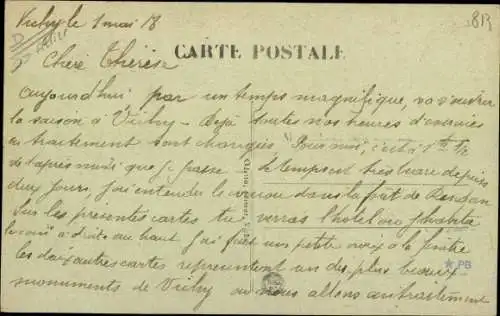 Vichy le 1 mai 18
813
CARTE POSTALE
Chère Thérèse
aujourd'hui par un temps magnifique, va s'ouvrir
la saison à Vichy - Déjà toutes nos heures d'exercices
en traitement sont changées "Pour moi, c'est à 1h 1/2
de l'après midi que je passe - le temps est très beau depuis
deux jours, j'ai entendu le coucou dans la forêt de Randan
Sur les présentes cartes tu verras l'hôtel où j'habite
la croix à droite au haut j'ai fait une petite croix à la fenêtre
les deux autres cartes représentent un des plus beaux
monuments de Vichy où nous allons au traitement
PB